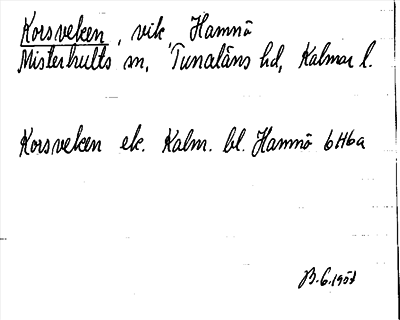 Korsveken, vik, Hamnö
Misterhults sn, Tunaläns hd, Kalmar l.
Korsveken ek. Kalm. bl. Hamnö 6H6a
B. G. 1957